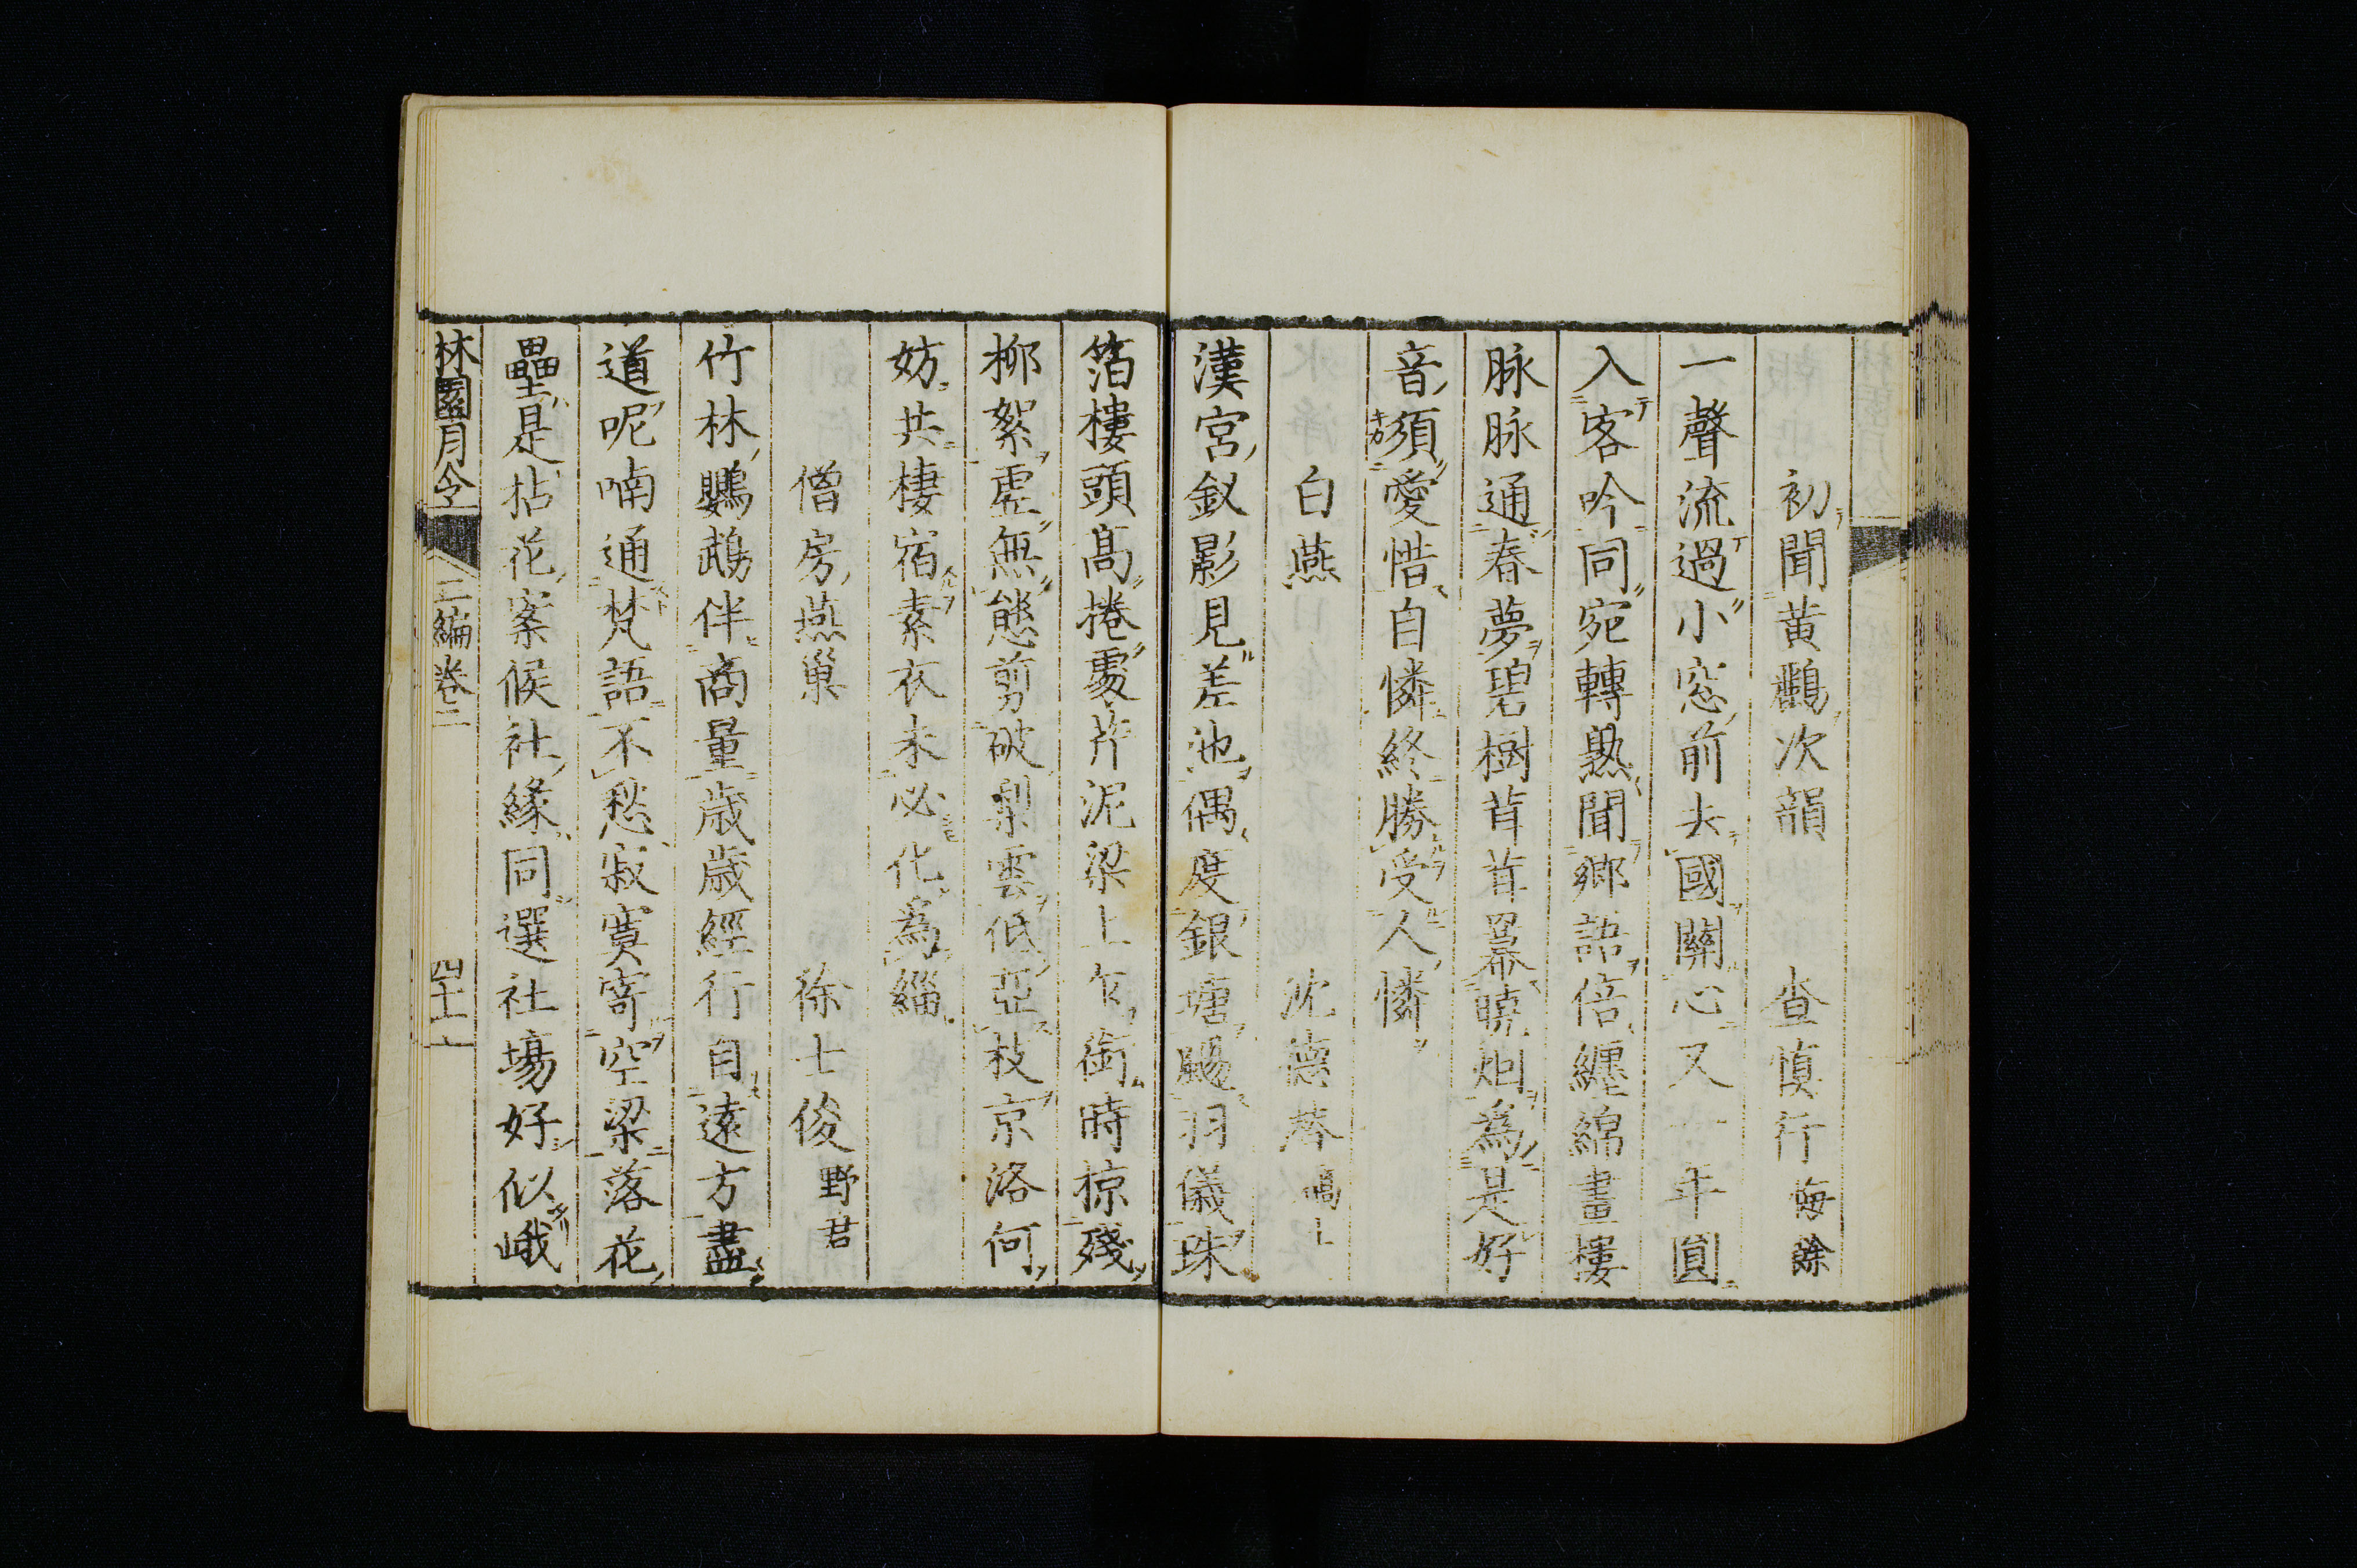 初聞黄鸝次韻　査慎行 悔餘
一聲流過小窓前去國關心又一年圓
入客吟同宛轉熟聞鄉語倍纏綿畫樓
脉脉通春夢碧樹茸茸羃曉烟為是好
音須愛惜自憐終勝受人憐
白燕　沈德
漢宮釵影見差池偶度銀塘颺羽儀珠
箔樓頭髙捲處芹泥梁上乍銜時掠殘
柳絮虚無態剪破梨雲低亞枝京洛何
妨共棲宿素衣未必化為緇
僧房燕巢　徐士俊 野君
竹林鸚鵡伴商量歳歳經行自遠方盡
道呢喃通梵語不愁寂寞寄空梁落花
壘是拈花案候社緣同選社場好似峨
林園月令　二編卷二　四十七